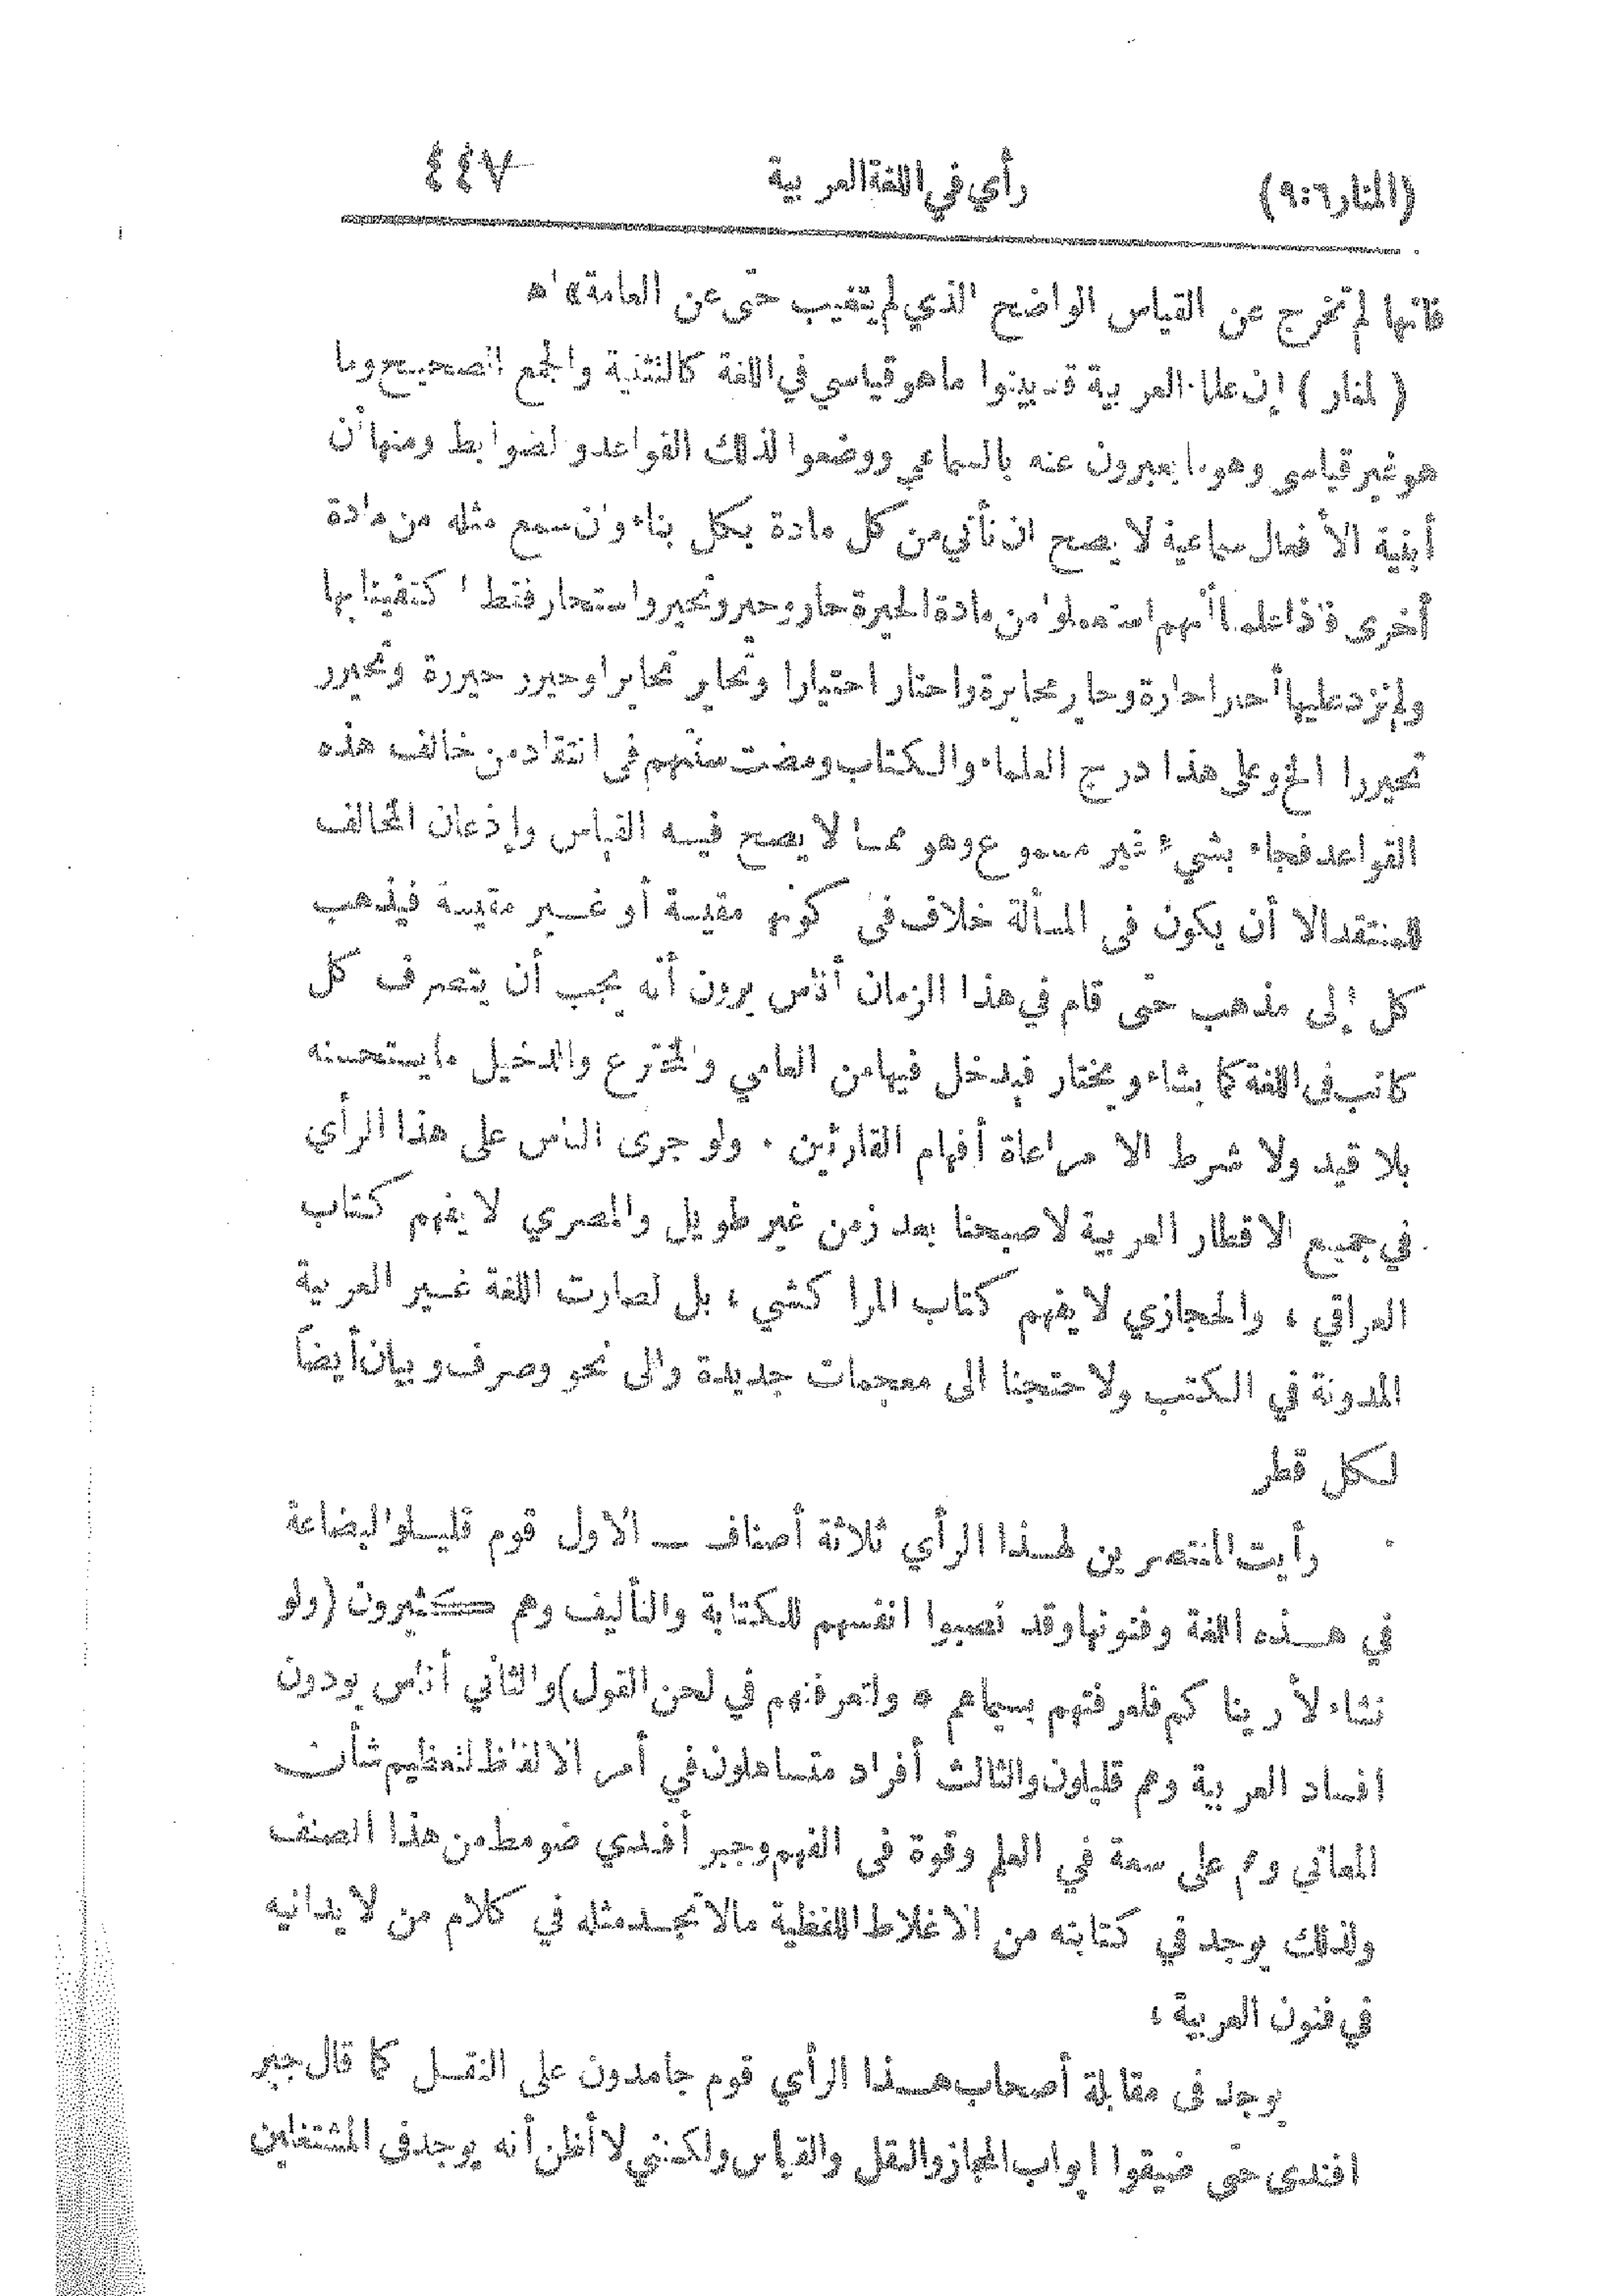 (المنار ٩:٦) رأي في اللغة العربية ٤٤٧
فانها لم تخرج عن القياس الواضح الذي لم يتغيب حتى عن العامة» اه
(المنار) إن علماء العربية قد بينوا ما هو قياسي في اللغة كالتثنية والجمع الصحيح وما
هو غير قياسي وهو ما يعبرون عنه بالسماعي ووضعوا لذلك القواعد والضوابط ومنها أن
أبنية الأفعال سماعية لا يصح ان نأتي من كل مادة بكل بناء وان سمع مثله من مادة
أخرى فاذا علمنا أنهم استعملوا من مادة الحيرة حار وحير وتحير واستحار فقط اكتفينا بها
ولم نزد عليها أحار احارة وحاير محايرة واحتار احتيارا وتحاير تحايرا وحيرر حيررة وتحيرر
تحيررا الخ وعلى هذا درج العلماء والكتاب ومضت سنتهم في انتقاد من خالف هذه
القواعد فجاء بشيء غير مسموع وهو مما لا يصح فيه القياس وإذعان المخالف
للمنتقد الا أن يكون في المسألة خلاف في كونها مقيسة أو غير مقيسة فيذهب
كل إلى مذهب حتى قام في هذا الزمان أناس يرون أنه يجب أن يتصرف كل
كاتب في اللغة كما يشاء ويختار فيدخل فيها من العامي والمخترع والدخيل ما يستحسنه
بلا قيد ولا شرط الا مراعاة أفهام القارئين . ولو جرى الناس على هذا الرأي
في جميع الاقطار العربية لاصبحنا بعد زمن غير طويل والمصري لا يفهم كتاب
العراقي ، والحجازي لا يفهم كتاب المراكشي ، بل لصارت اللغة غير العربية
المدونة في الكتب ولاحتجنا الى معجمات جديدة والى نحو وصرف وبيان أيضاً
لكل قطر
رأيت المنتصرين لهذا الرأي ثلاثة أصناف ــ الاول قوم قليلو البضاعة
في هذه اللغة وفنونها وقد نصبوا انفسهم للكتابة والتأليف وهم كثيرون (ولو
نشاء لأريناكم فلعرفتهم بسيماهم * ولتعرفنهم في لحن القول) والثاني أناس يودون
افساد العربية وهم قليلون والثالث أفراد متساهلون في أمر الالفاظ لتعظيم شأن
المعاني وهم على سعة في العلم وقوة في الفهم وجبر أفندي ضومط من هذا الصنف
ولذلك يوجد في كتابته من الاغلاط اللفظية مالا تجد مثله في كلام من لا يدانيه
في فنون العربية ،
يوجد في مقابلة أصحاب هذا الرأي قوم جامدون على النقل كما قال جبر
افندي حتى ضيقوا ابواب المجاز والنقل والقياس ولكنني لا أظن أنه يوجد في المشتغلين